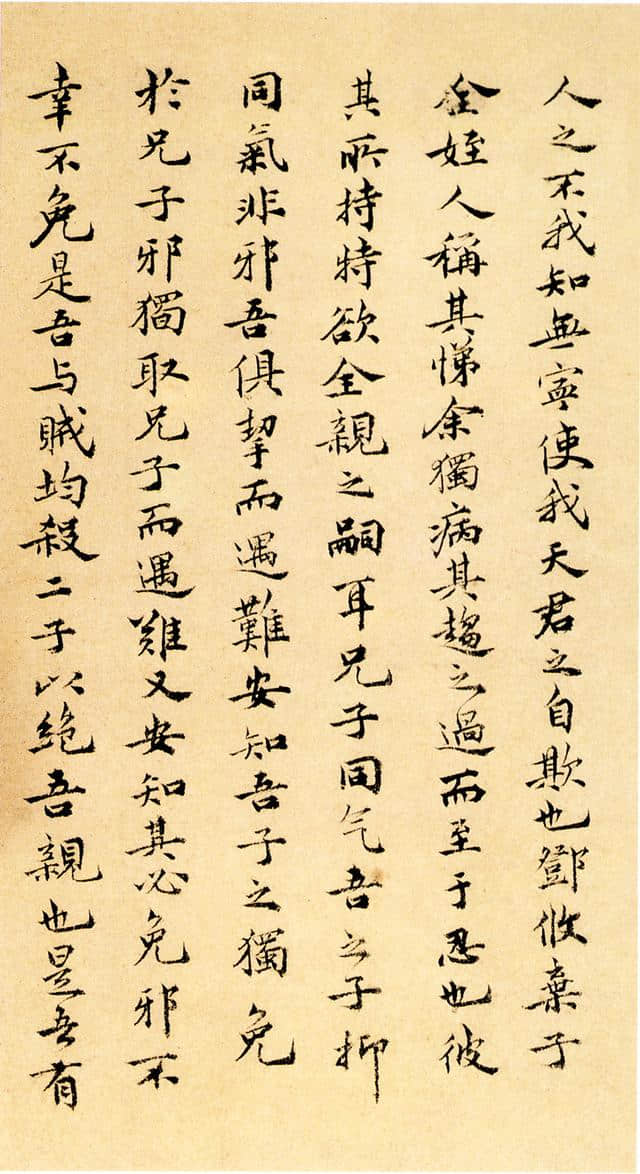 人之不我知無寧使我天君之自欺也鄧攸棄子
全姪人稱其悌余獨病其趨之過而至于忍也彼
其所持特欲全親之嗣耳兄子同气吾之子抑
同氣非邪吾俱挈而遇難安知吾子之獨免
於兄子邪獨取兄子而遇難又安知其必免邪不
幸不免是吾与賊均殺二子以絶吾親也是吾有